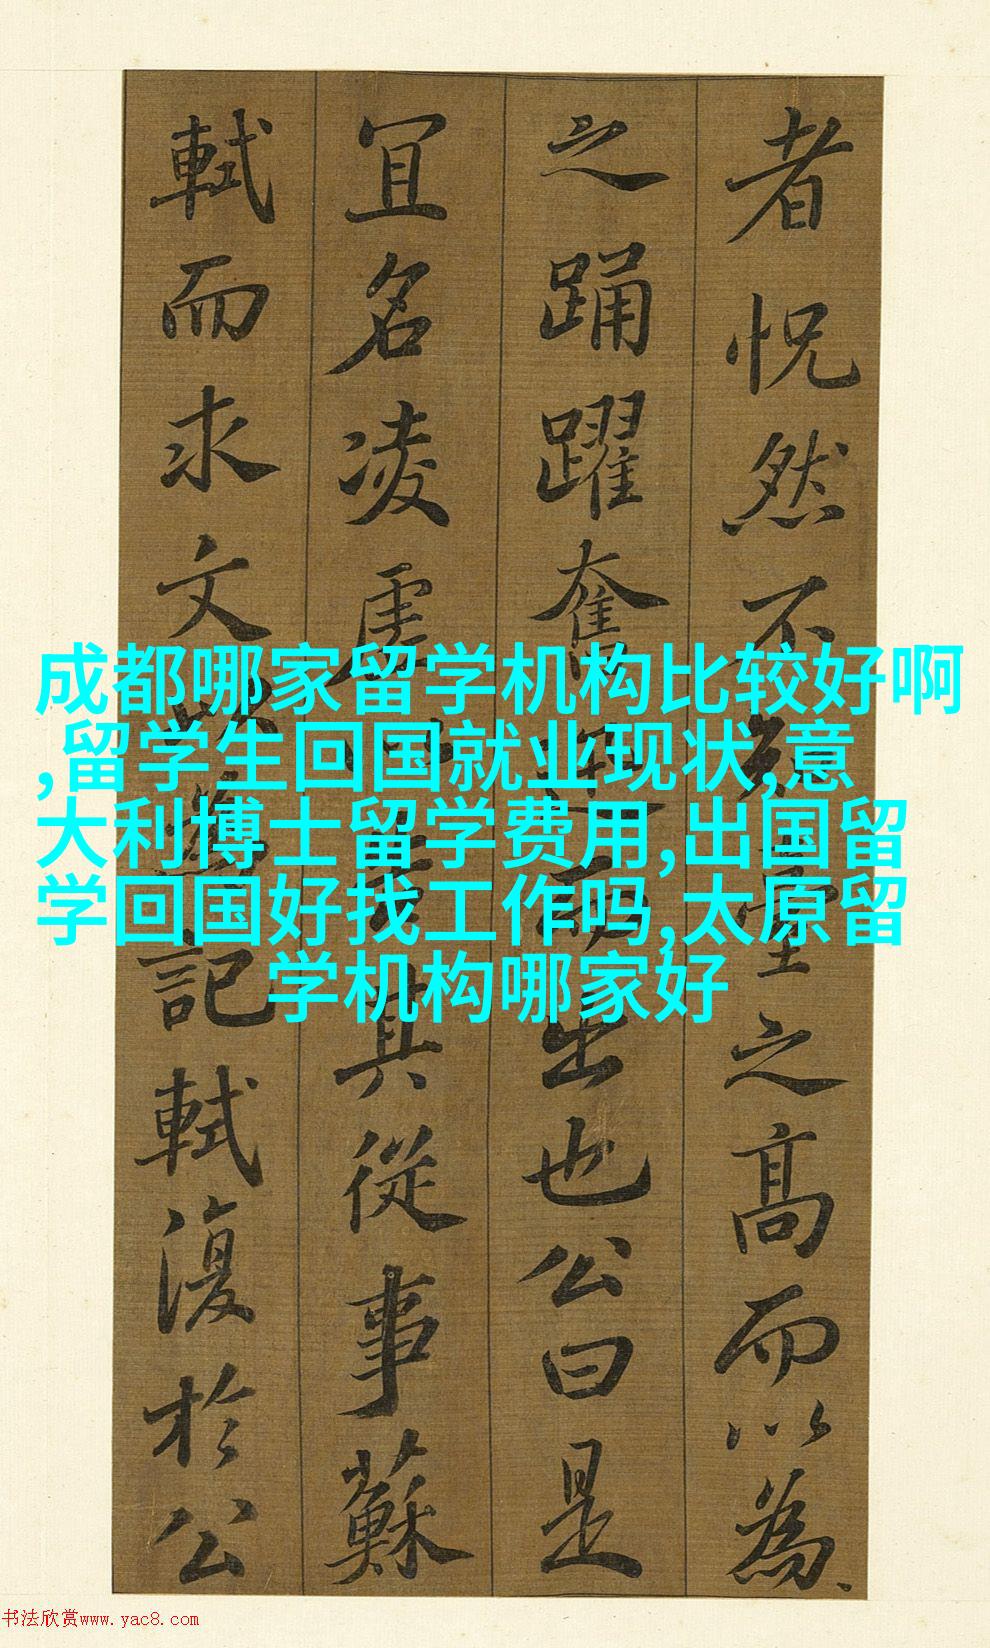 者怳然不知臺之高而以為
之踊躍奮迅而出也公曰是
冝名凌虛以告其從事蘇
軾而求文以為記軾復於公
成都哪家留学机构比较好啊
,留学生回国就业现状,意
大利博士留学费用,出国留
学回国好找工作吗,太原留
学机构哪家好
书法欣赏www.yac8.com